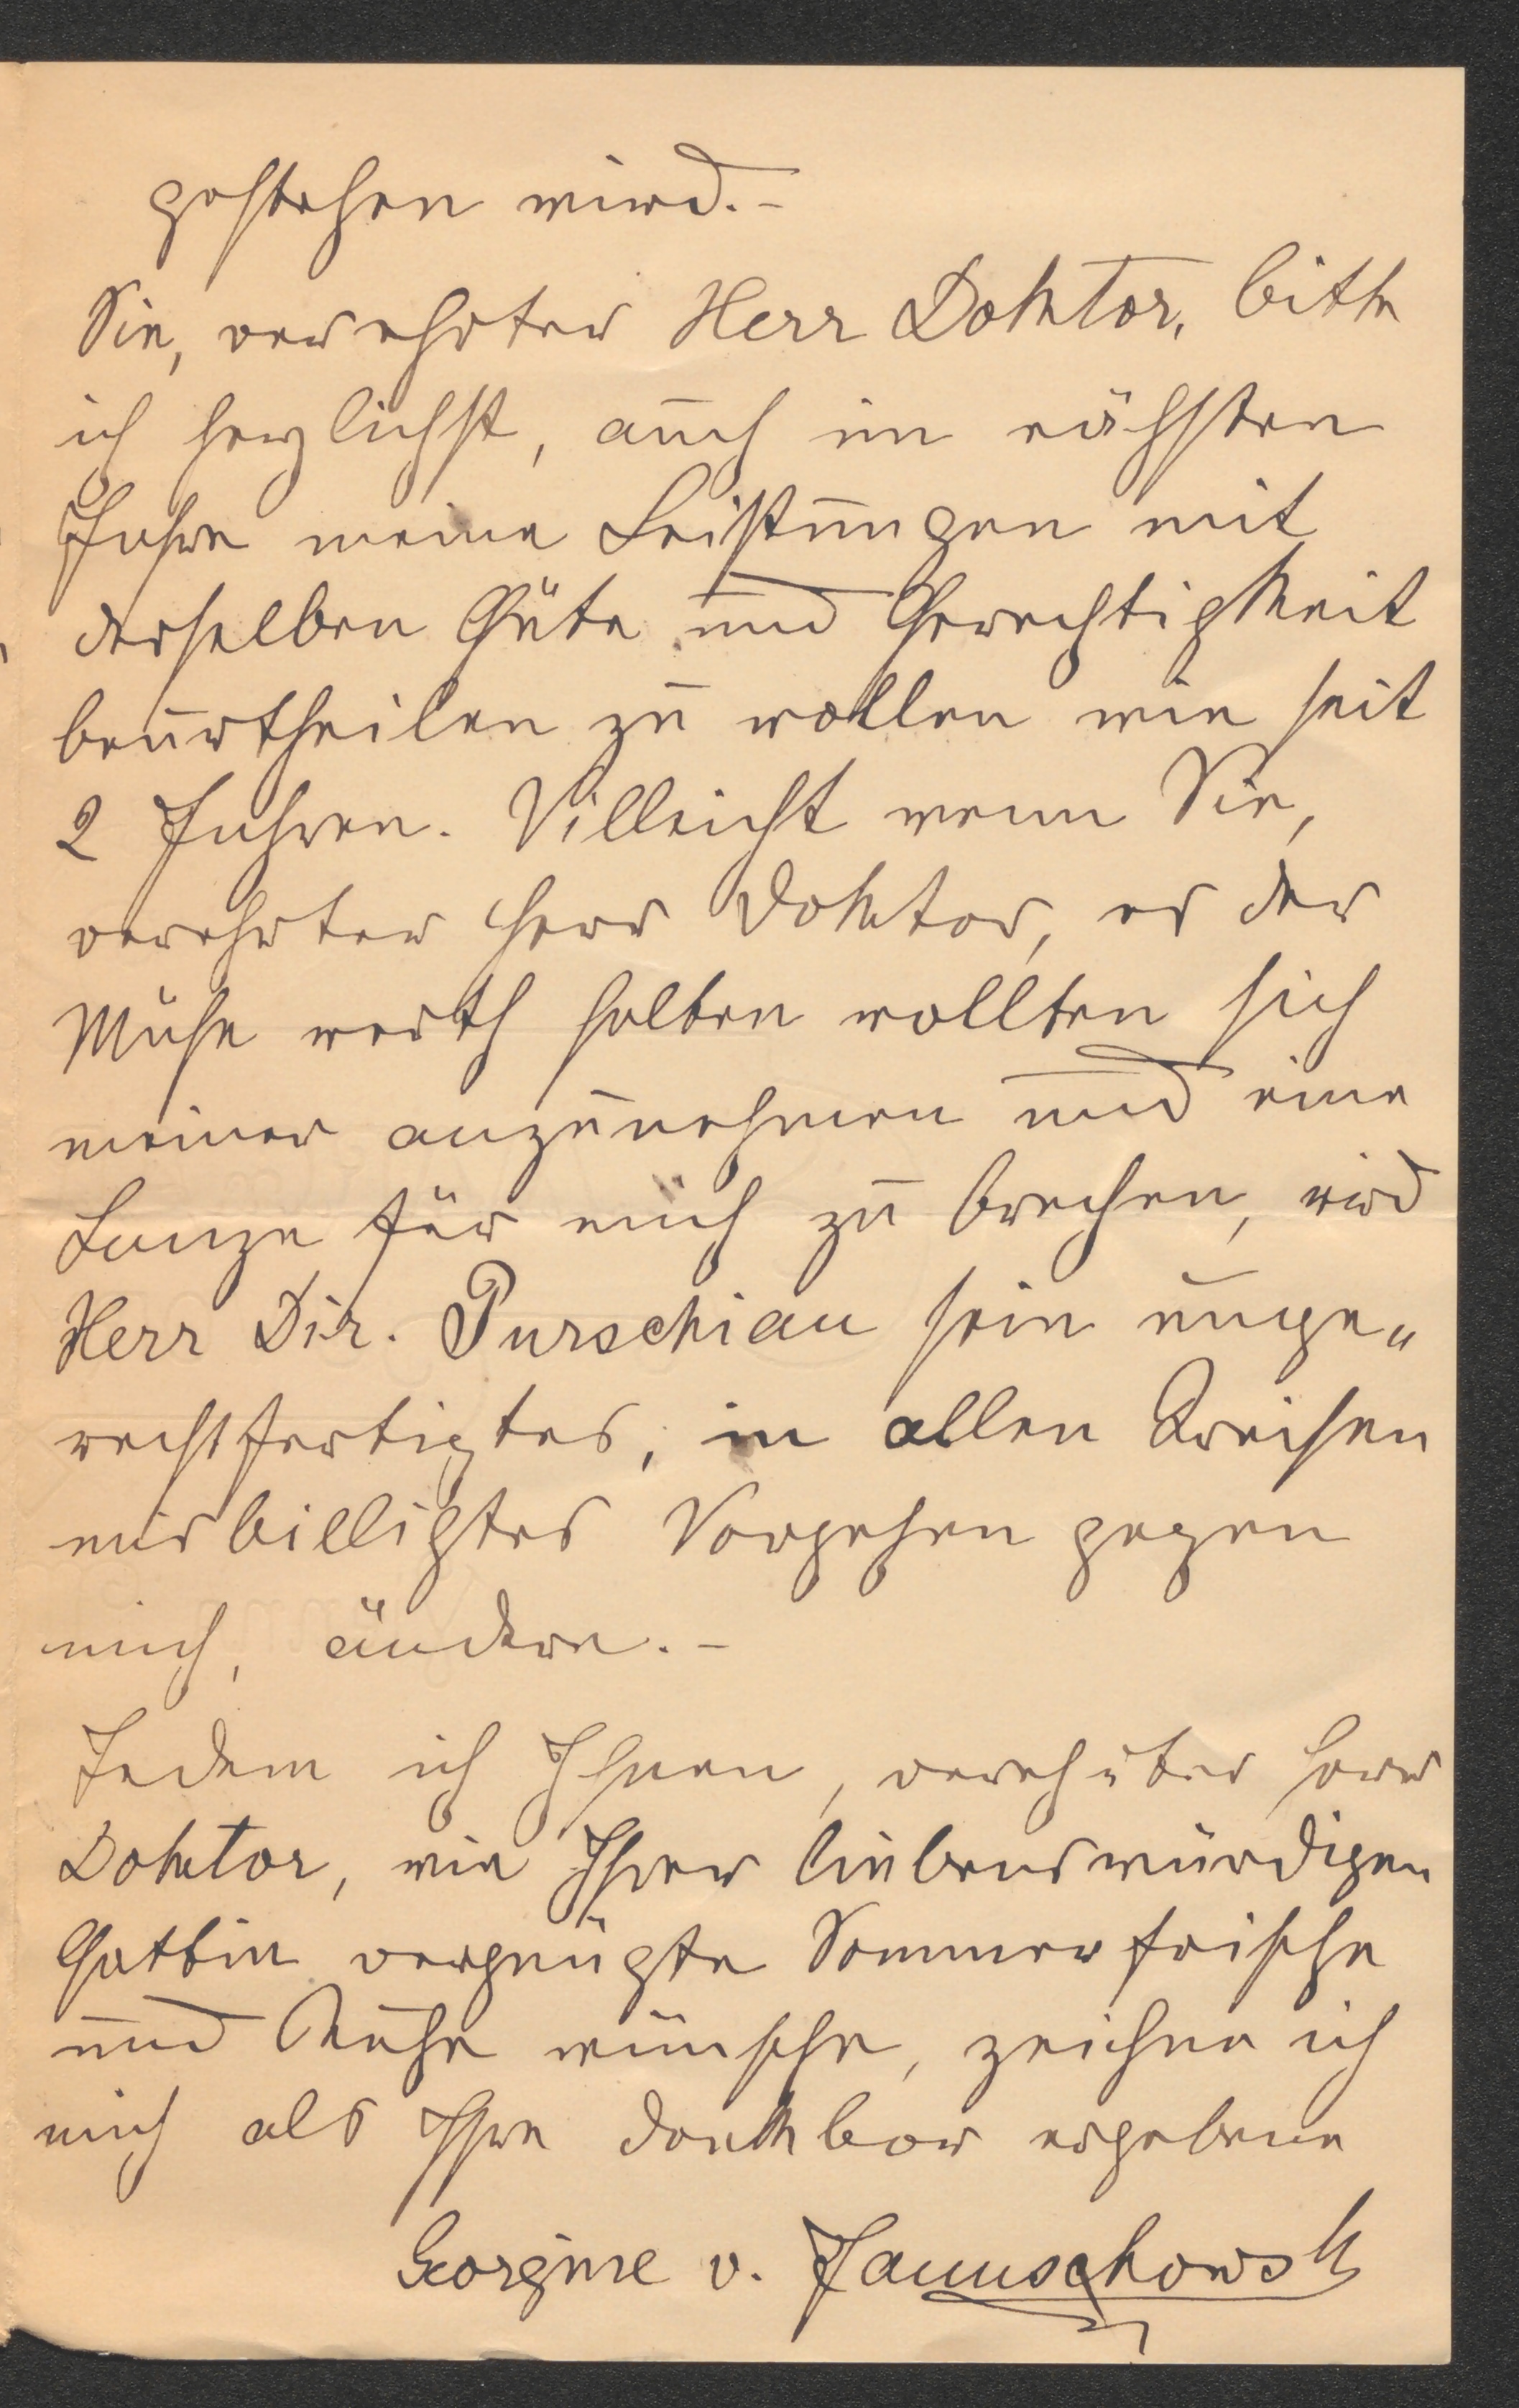 gestehen wird. -
Sie, verehrter Herr Doktor, bitte
ich herzlichst, auch im nächsten
Jahre meine Leistungen mit
derselben Güte und Gerechtigkeit
beurtheilen zu wollen wie seit
2 Jahren. Villeicht wenn Sie,
verehrter Herr Doktor, es der
Mühe werth halten wollten sich
meiner anzunehmen und eine
Lanze für mich zu brechen, wird
Herr Dir. Purschian sein unge„
rechtfertigtes, in allen Kreisen
misbilligtes Vorgehen gegen
mich, ändern. -
Indem ich Ihnen, verehrter Herr
Doktor, wie Ihrer liebenswürdigen
Gattin vergnügte Sommerfrische
und Ruhe wünsche, zeichne ich
mich als Ihre dankbar ergebene
Georgine v. Januschowsky